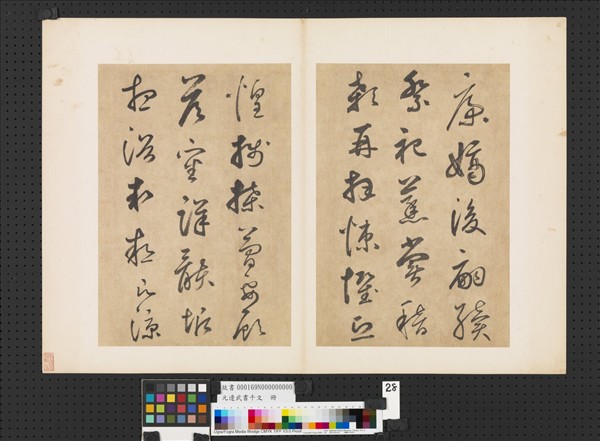 康嫡後嗣續
祭祀蒸嘗稽
顙再拜悚懼恐
惶牋牒簡要顧
答審詳骸垢
想浴執熱願涼
故書 000169N000000000
元邊武書千文 冊
28